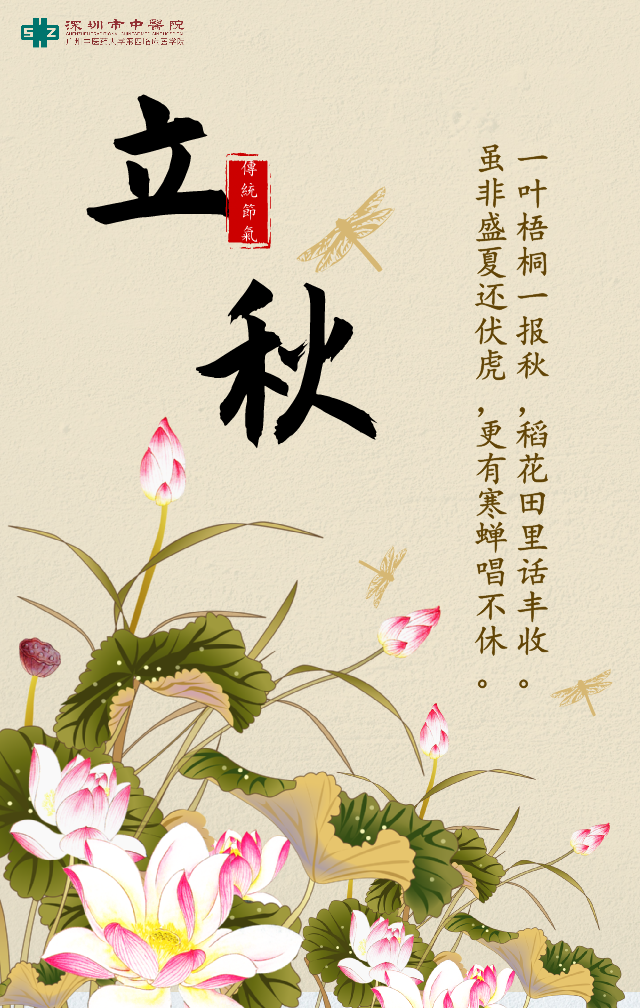 深圳市中醫院
广州中医药大学第四临床医学院
立秋
傳統節氣
一叶梧桐一报秋,稻花田里话丰收。
虽非盛夏还伏虎,更有寒蝉唱不休。